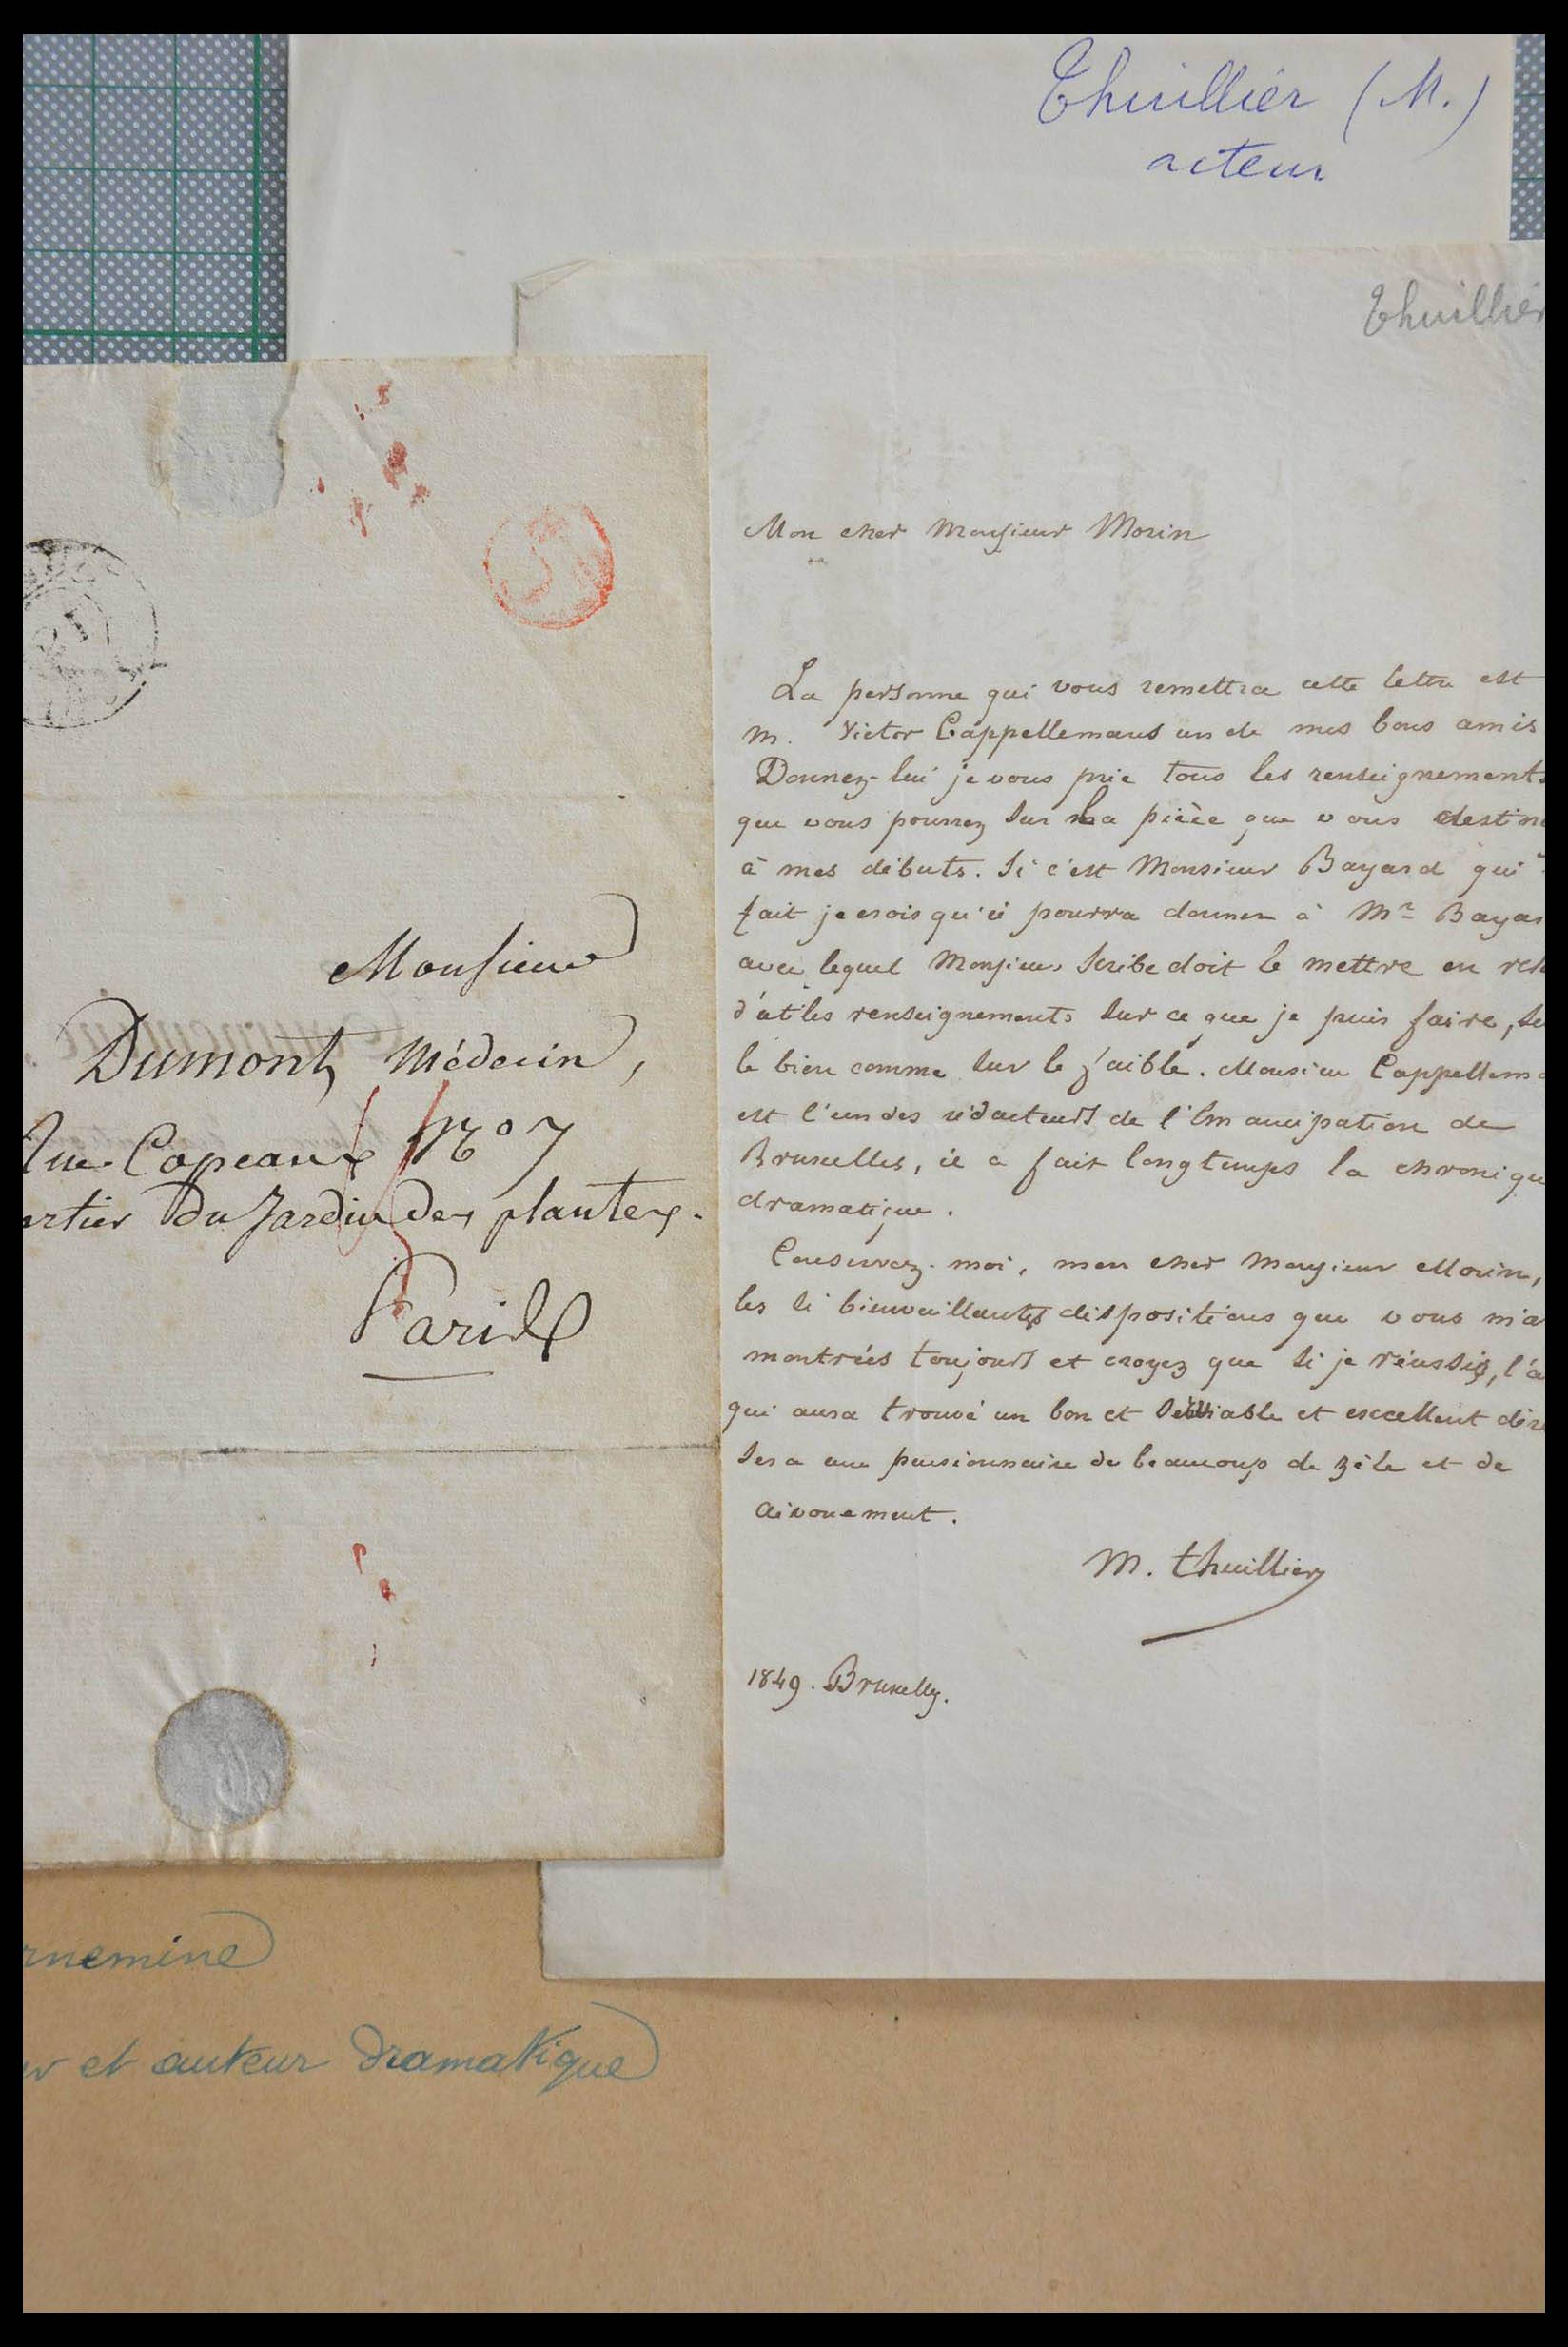 Thuillier (M.)
acteur
Thuillier
Mon cher Monsieur Morin
La personne qui vous remettra cette lettre est
M. Victor Cappellemans un de mes bons amis
Donnez-lui je vous prie tous les renseignements
que vous pourrez sur la pièce que vous destin
à mes débuts. Si c'est Monsieur Bayard qui
fait je crois qu'il pourra donner à Mr Bayar
avec lequel Monsieur Scribe doit le mettre en rel
d'utiles renseignements sur ce que je puis faire, su
le bien comme sur le faible. Monsieur Cappellema
est l'un des rédacteurs de l'Emancipation de
Bruxelles, il a fait longtemps la chronique
dramatique.
Conservez-moi, mon cher Monsieur Morin,
les si bienveillantes dispositions que vous m'a
montrées toujours et croyez que si je réussis, l'a
qui aura trouvé un bon et et excellent dire
sera une pensionnaire de beaucoup de zèle et de
dévouement.
M. Thuillier
1849. Bruxelles.
Monsieur
Dumont, Médecin,
Rue Copeaux No 7
artier du Jardin des plantes.
Paris
rnemine
ur et auteur dramatique